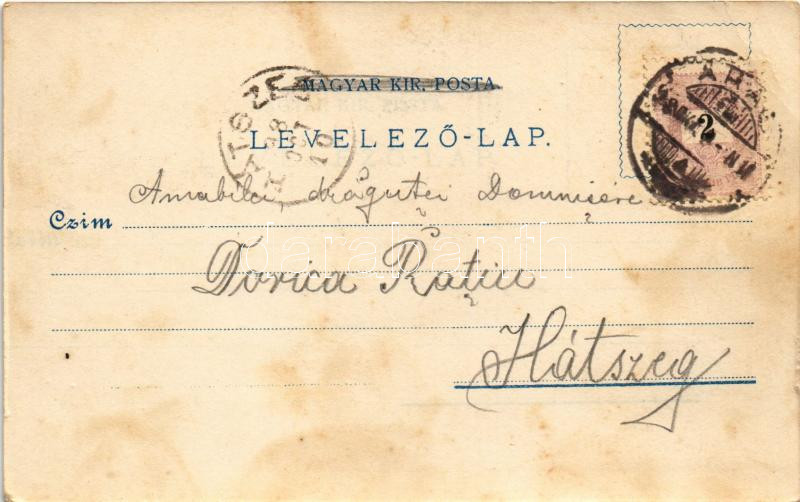 MAGYAR KIR. POSTA
LEVELEZŐ-LAP.
HÁTSZEG
98
10
ARAD
2
Amabilei drăguței Domnișóre
Czim
Dorica Rațiu
Hátszeg
darabanth